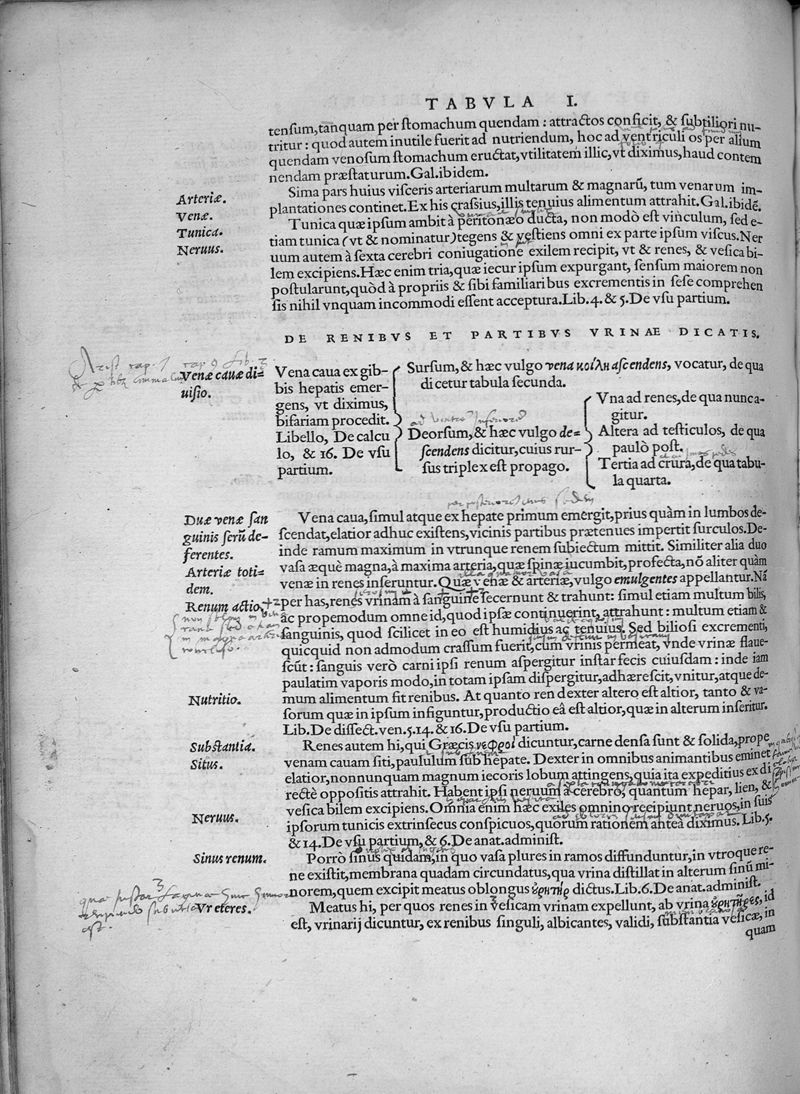 TABVLA I.
tensum, tanquam per stomachum quendam : attractos conficit, & subtiliori nu-
tritur : quod autem inutile fuerit ad nutriendum, hoc ad ventriculi os per alium
quendam venosum stomachum eructat, vtilitatem illic, vt diximus, haud contem
nendam præstaturum. Gal. ibidem.
Arteriæ.
Sima pars huius visceris arteriarum multarum & magnarũ, tum venarum im-
Venæ.
plantationes continet. Ex his crassius, illis tenuius alimentum attrahit. Gal. ibidẽ.
Tunica.
Tunica quæ ipsum ambit à peritonæo ducta, non modò est vinculum, sed e-
Neruus.
tiam tunica (vt & nominatur) tegens & vestiens omni ex parte ipsum viscus. Ner
uum autem à sexta cerebri coniugatione exilem recipit, vt & renes, & vesica bi-
lem excipiens. Hæc enim tria, quæ iecur ipsum expurgant, sensum maiorem non
postularunt, quòd à propriis & sibi familiaribus excrementis in sese comprehen
sis nihil vnquam incommodi essent acceptura. Lib. 4. & 5. De vsu partium.
DE RENIBVS ET PARTIBVS VRINAE DICATIS.
Venæ cauæ di-
uisio.
Vena caua ex gib-
bis hepatis emer-
gens, vt diximus,
bifariam procedit.
Libello, De calcu
lo, & 16. De vsu
partium.
Sursum, & hæc vulgo vena κοίλη ascendens, vocatur, de qua
dicetur tabula secunda.
Deorsum, & hæc vulgo de-
scendens dicitur, cuius rur-
sus triplex est propago.
Vna ad renes, de qua nunc a-
gitur.
Altera ad testiculos, de qua
paulò post.
Tertia ad crura, de qua tabu-
la quarta.
Duæ venæ san
guinis serũ de-
ferentes.
Arteriæ toti-
dem.
Renum actio.
Vena caua, simul atque ex hepate primum emergit, prius quàm in lumbos de-
scendat, elatior adhuc existens, vicinis partibus prætenues impertit surculos. De-
inde ramum maximum in vtrunque renem subiectum mittit. Similiter alia duo
vasa æquè magna, à maxima arteria, quæ spinæ incumbit, profecta, nõ aliter quàm
venæ in renes inseruntur. Quæ venæ & arteriæ, vulgo emulgentes appellantur. Nã
per has, renes vrinam à sanguine secernunt & trahunt : simul etiam multum bilis,
ac propemodum omne id, quod ipsæ continuerint, attrahunt : multum etiam &
sanguinis, quod scilicet in eo est humidius ac tenuius. Sed biliosi excrementi,
quicquid non admodum crassum fuerit, cum vrinis permeat, vnde vrinæ flaue-
scũt : sanguis verò carni ipsi renum aspergitur instar fecis cuiusdam : inde iam
paulatim vaporis modo, in totam ipsam dispergitur, adhærescit, vnitur, atque de-
Nutritio.
mum alimentum fit renibus. At quanto ren dexter altero est altior, tanto & va-
sorum quæ in ipsum infiguntur, productio eâ est altior, quæ in alterum inseritur.
Lib. De dissect. ven. 5. 14. & 16. De vsu partium.
Substantia.
Renes autem hi, qui Græcis νεφροὶ dicuntur, carne densa sunt & solida, prope
Situs.
venam cauam siti, paululum sub hepate. Dexter in omnibus animantibus eminet
elatior, nonnunquam magnum iecoris lobum attingens, quia ita expeditius ex di
rectè oppositis attrahit. Habent ipsi neruum à cerebro, quantum hepar, lien, &
Neruus.
vesica bilem excipiens. Omnia enim hæc exiles omnino recipiunt neruos, in suis
ipsorum tunicis extrinsecus conspicuos, quorum rationem anteà diximus. Lib. 5.
& 14. De vsu partium, & 6. De anat. administ.
Sinus renum.
Porrò sinus quidam, in quo vasa plures in ramos diffunduntur, in vtroque re-
ne existit, membrana quadam circundatus, qua vrina distillat in alterum sinũ mi-
norem, quem excipit meatus oblongus ὀρητὴρ dictus. Lib. 6. De anat. administ.
Vreteres.
Meatus hi, per quos renes in vesicam vrinam expellunt, ab vrina ὀρητῆρες, id
est, vrinarij dicuntur, ex renibus singuli, albicantes, validi, substantia vesicæ, in
quam